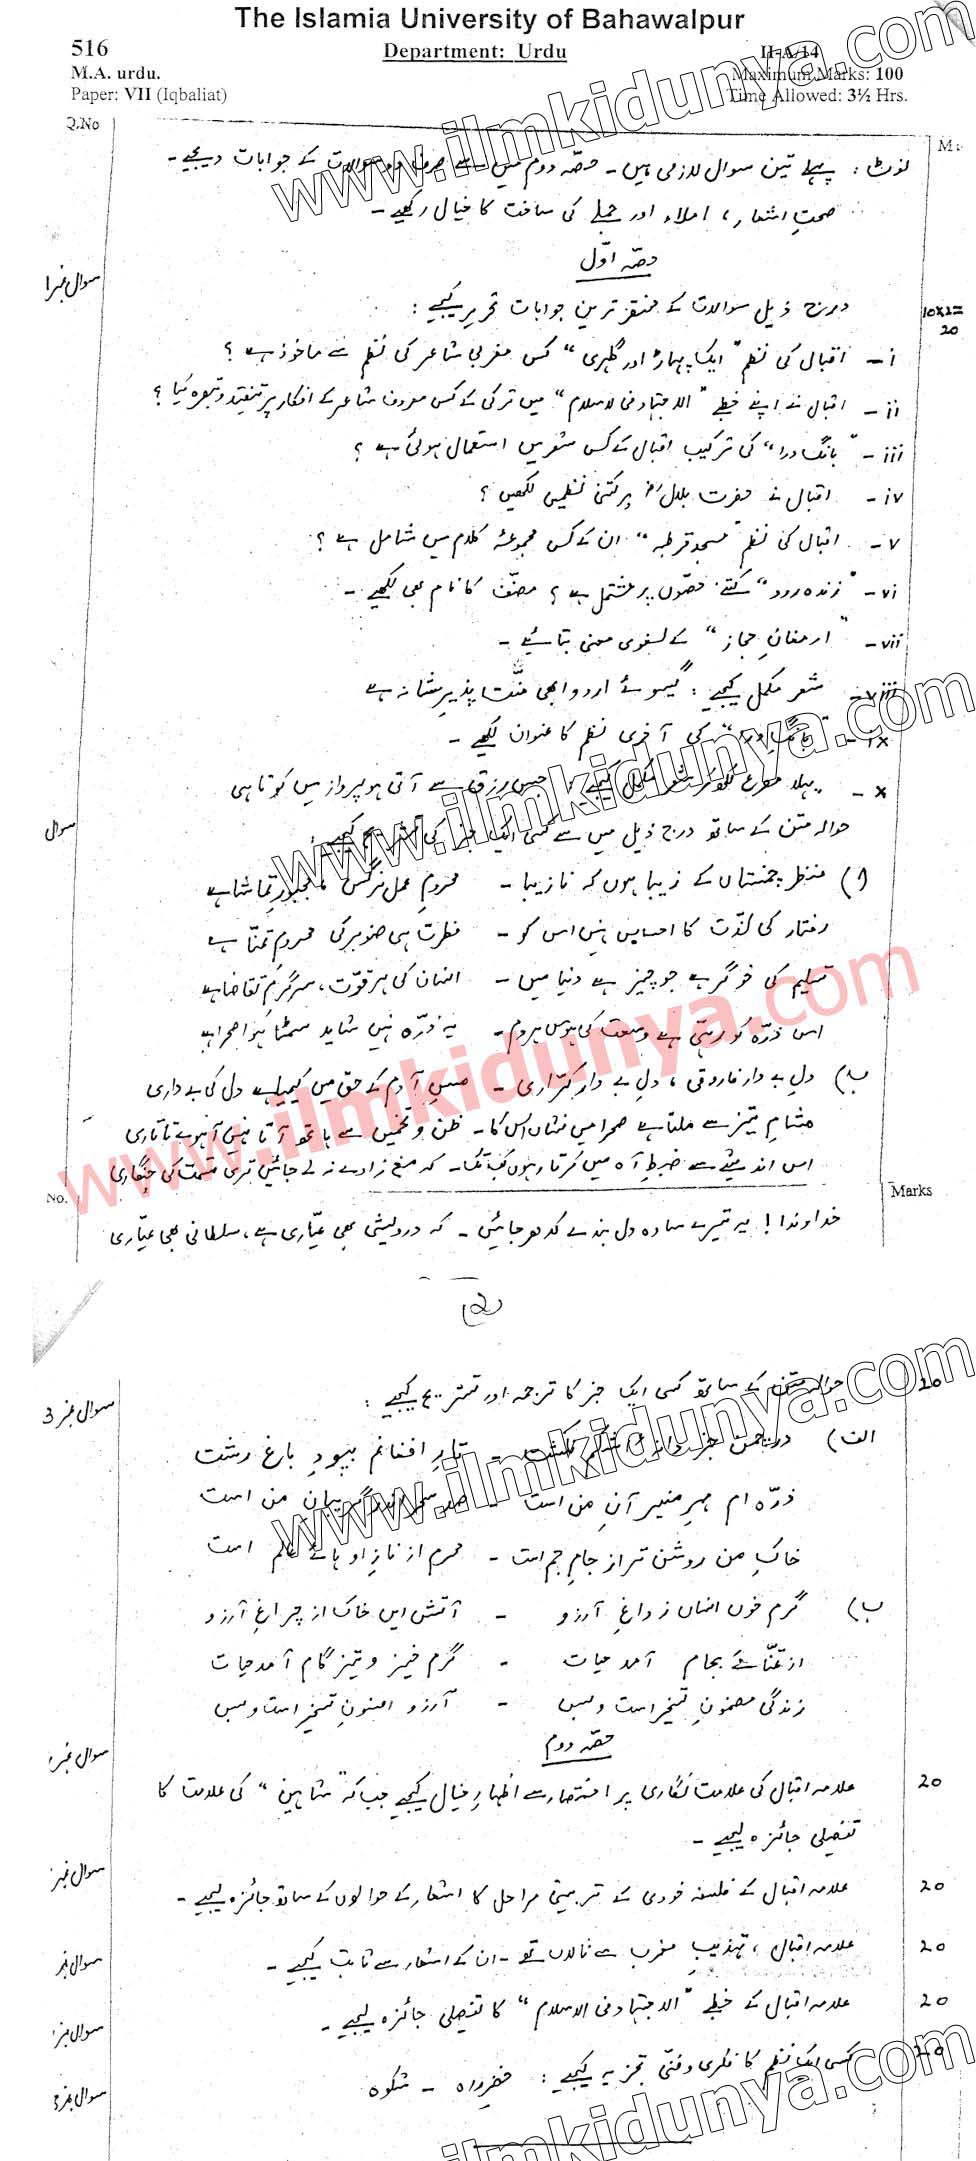 The Islamia University of Bahawalpur
516 Department: Urdu II-A/14
M.A. urdu. Maximum Marks: 100
Paper: VII (Iqbaliat) Time Allowed: 3½ Hrs.
Q.No
نوٹ: پہلے تین سوال لازمی ہیں۔ حصّہ دوم میں سے صرف دو سوالات کے جوابات دیجیے۔
صحتِ اشعار، املاء اور جملے کی ساخت کا خیال رکھیے۔
حصہ اوّل
سوال نمبر 1
درج ذیل سوالات کے مختصر ترین جوابات تحریر کیجیے: 10x2=20
i- اقبال کی نظم "ایک پہاڑ اور گلہری" کس مغربی شاعر کی نظم سے ماخوذ ہے؟
ii- اقبال نے اپنے خطبے "الاجتہاد فی الاسلام" میں ترکی کے کس معروف شاعر کے افکار پر تنقید و تبصرہ کیا؟
iii- "بانگِ درا" کی ترکیب اقبال کے کس شعر میں استعمال ہوئی ہے؟
iv- اقبال نے حضرت بلالؓ پر کتنی نظمیں لکھیں؟
v- اقبال کی نظم "مسجد قرطبہ" ان کے کس مجموعۂ کلام میں شامل ہے؟
vi- "زندہ رود" کتنے حصوں پر مشتمل ہے؟ مصنّف کا نام بھی لکھیے۔
vii- "ارمغانِ حجاز" کے لغوی معنی بتائیے۔
viii- شعر مکمل کیجیے: گیسوئے اردو ابھی منّت پذیرِ شانہ ہے
ix- "بانگِ درا" کی آخری نظم کا عنوان لکھیے۔
x- پہلا مصرع لکھ کر شعر مکمل کیجیے: جس رزق سے آتی ہو پرواز میں کوتاہی
سوال
حوالہ متن کے ساتھ درج ذیل میں سے کسی ایک جز کی تشریح کیجیے:
(ا) منظر چمنستاں کے زیبا ہوں کہ نازیبا - محرومِ عمل نرگس مجبورِ تماشا ہے
رفتار کی لذّت کا احساس نہیں اس کو - فطرت ہی صنوبر کی محرومِ تمنّا ہے
تسلیم کی خوگر ہے جو چیز ہے دنیا میں - انسان کی ہر قوّت، سرگرمِ تقاضا ہے
اس ذرّہ کو رہتی ہے وسعت کی ہوس ہر دم - یہ ذرّہ نہیں شاید سمٹا ہوا صحرا ہے
ب) دلِ بے دار فاروقی، دلِ بے دار کرّاری - مسِ آدم کے حق میں کیمیا ہے دل کی بے داری
مشامِ تیز سے ملتا ہے صحرا میں نشاں اس کا - ظن و تخمیں سے ہاتھ آتا نہیں آہوئے تاتاری
اس اندیشے سے ضبطِ آہ میں کرتا رہوں کب تک - کہ مغ زادے نہ لے جائیں تری قسمت کی چنگاری
No. Marks
خداوندا! یہ تیرے سادہ دل بندے کدھر جائیں - کہ درویشی بھی عیّاری ہے، سلطانی بھی عیّاری
(2)
سوال نمبر 3
حوالہ متن کے ساتھ کسی ایک جز کا ترجمہ اور تشریح کیجیے: 20
الف) در چمن جز دانۂ اشکم نکشت - تارِ افغانم بپودِ باغ رشت
ذرّہ ام مہرِ منیر آنِ من است - صد سحر اندر گریبانِ من است
خاکِ من روشن تر از جامِ جم است - محرم از نازاد ہائے عالم است
ب) گرم خون انساں ز داغِ آرزو - آتش ایں خاک از چراغِ آرزو
از تمنّا مے بجام آمد حیات - گرم خیز و تیز گام آمد حیات
زندگی مضمونِ تسخیر است و بس - آرزو افسونِ تسخیر است و بس
حصہ دوم
سوال نمبر
علامہ اقبال کی علامت نگاری پر اختصار سے اظہارِ خیال کیجیے جب کہ "شاہین" کی علامت کا 20
تفصیلی جائزہ لیجیے۔
سوال نمبر
علامہ اقبال کے فلسفہ خودی کے تربیتی مراحل کا اشعار کے حوالوں کے ساتھ جائزہ لیجیے۔ 20
سوال نمبر
علامہ اقبال، تہذیبِ مغرب سے نالاں تھے۔ ان کے اشعار سے ثابت کیجیے۔ 20
سوال نمبر
علامہ اقبال کے خطبے "الاجتہاد فی الاسلام" کا تفصیلی جائزہ لیجیے۔ 20
سوال نمبر
کسی ایک نظم کا فکری و فنّی تجزیہ کیجیے: خضرِ راہ - شکوہ 20
www.ilmkidunya.com
www.ilmkidunya.com
www.ilmkidunya.com
www.ilmkidunya.com
www.ilmkidunya.com